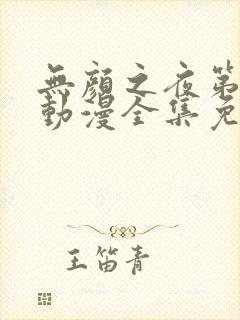 無顏之夜第
動漫全集免
王笛青